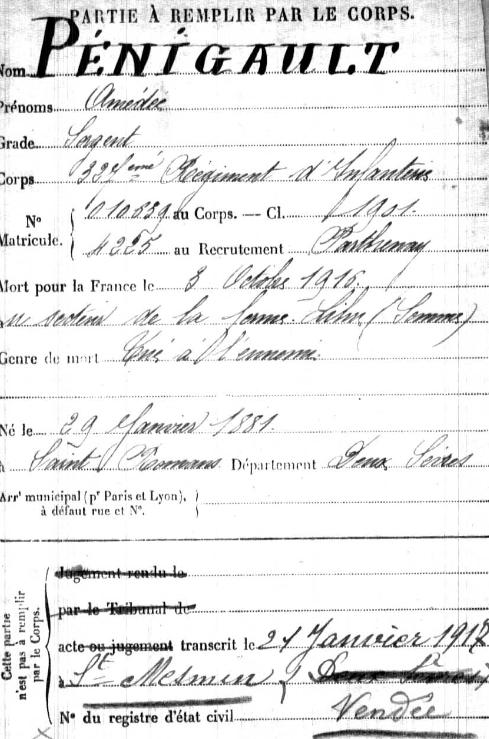 PARTIE À REMPLIR PAR LE CORPS.
Nom PÉNIGAULT
Prénoms Amédée
Grade Sergent
Corps 337ème Régiment d'Infanterie
N° Matricule. 010539 au Corps. — Cl. 1901.
4225 au Recrutement Parthenay
Mort pour la France le 3 Octobre 1916.
secteur de la ferme Lihu (Somme)
Genre de mort Tué à l'ennemi.
Né le 29 Janvier 1881.
à Saint Romans Département Deux Sèvres
Arrt municipal (pr Paris et Lyon),
à défaut rue et N°.
Cette partie
n'est pas à remplir
par le Corps.
Jugement rendu le
par le Tribunal de
acte ou jugement transcrit le 21 Janvier 1917
à St Mesmin, Deux Sèvres
N° du registre d'état civil Vendée